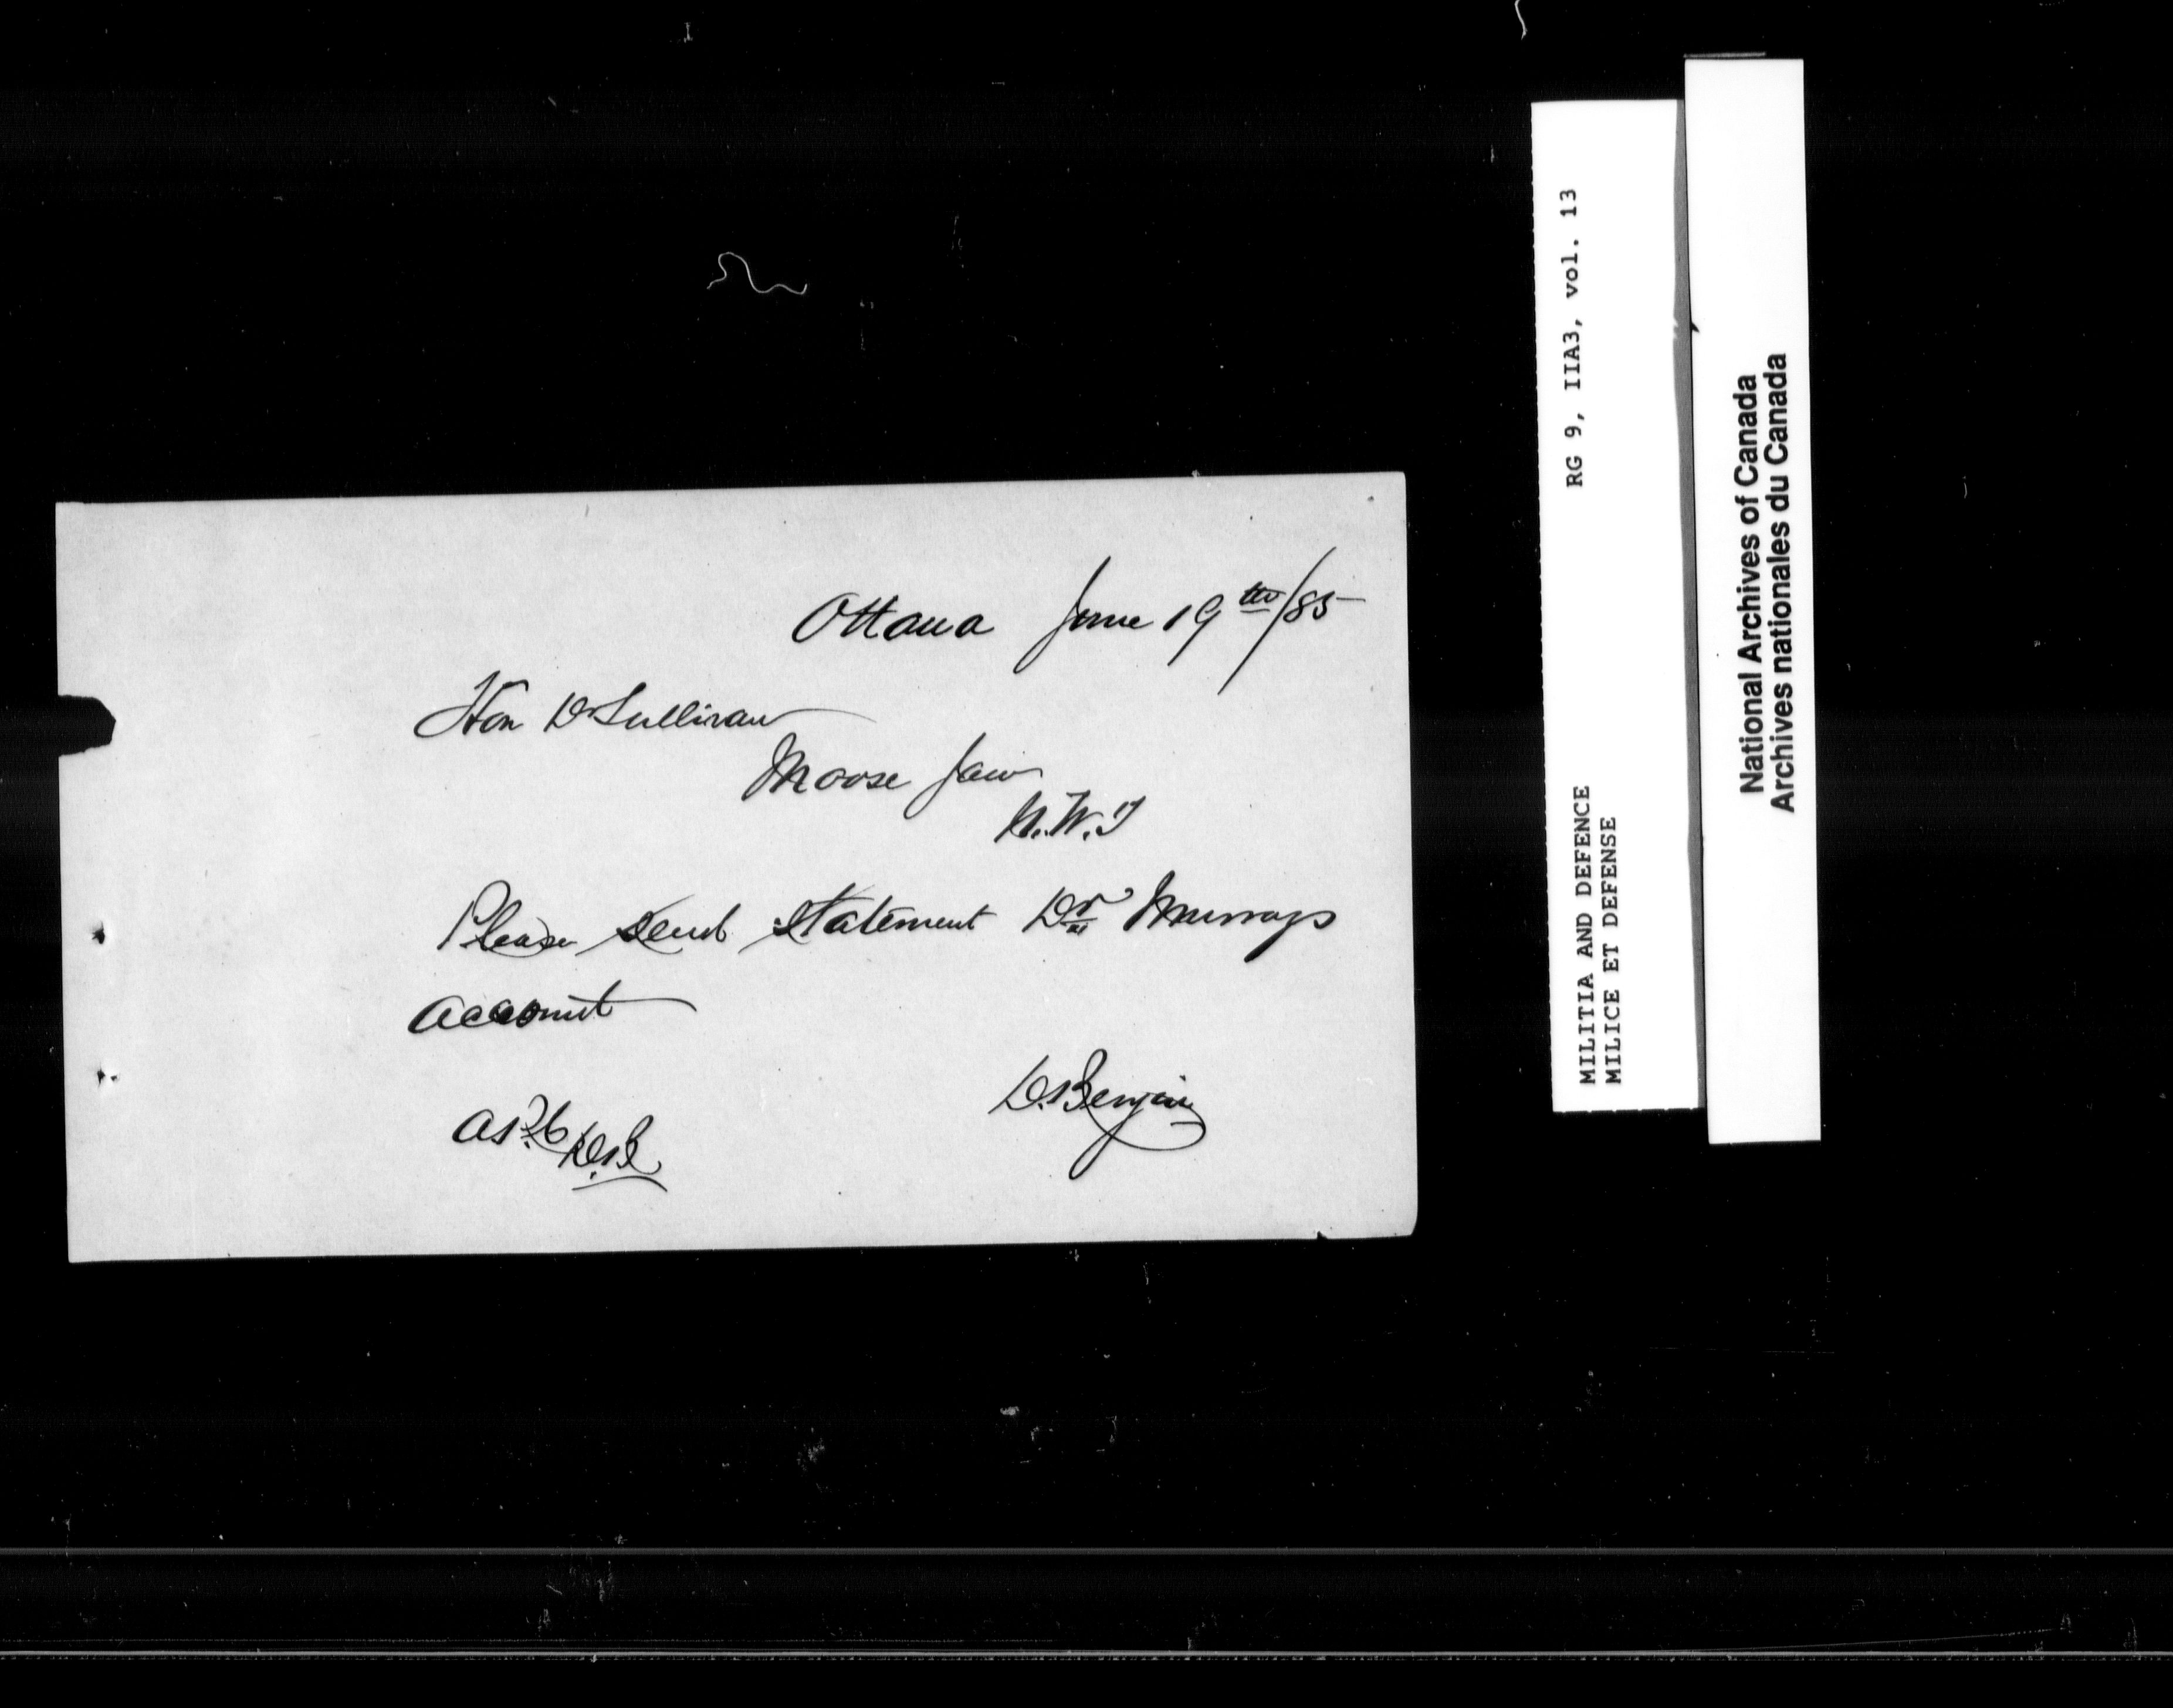 Ottawa June 19th/85
Hon Dr Sullivan
Moose Jaw
N.W.T
Please send statement Dr Murrays
account
D. Bergin
D.B.
RG 9, IIA3, vol. 13
MILITIA AND DEFENCE
MILICE ET DEFENSE
National Archives of Canada
Archives nationales du Canada